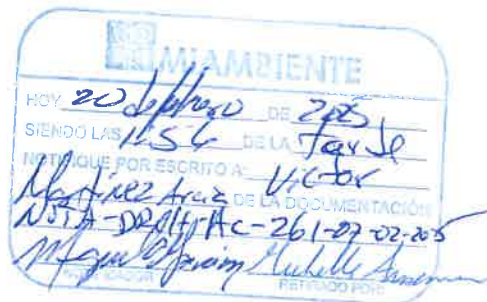 MIAMBIENTE
HOY 20 de febrero DE 2025
SIENDO LAS 1:54 DE LA Tarde
NOTIFIQUE POR ESCRITO A: Victor
Martínez Arauz DE LA DOCUMENTACIÓN
261-07-02-2025
NOTIFICADOR Michelle RETIRADO POR: